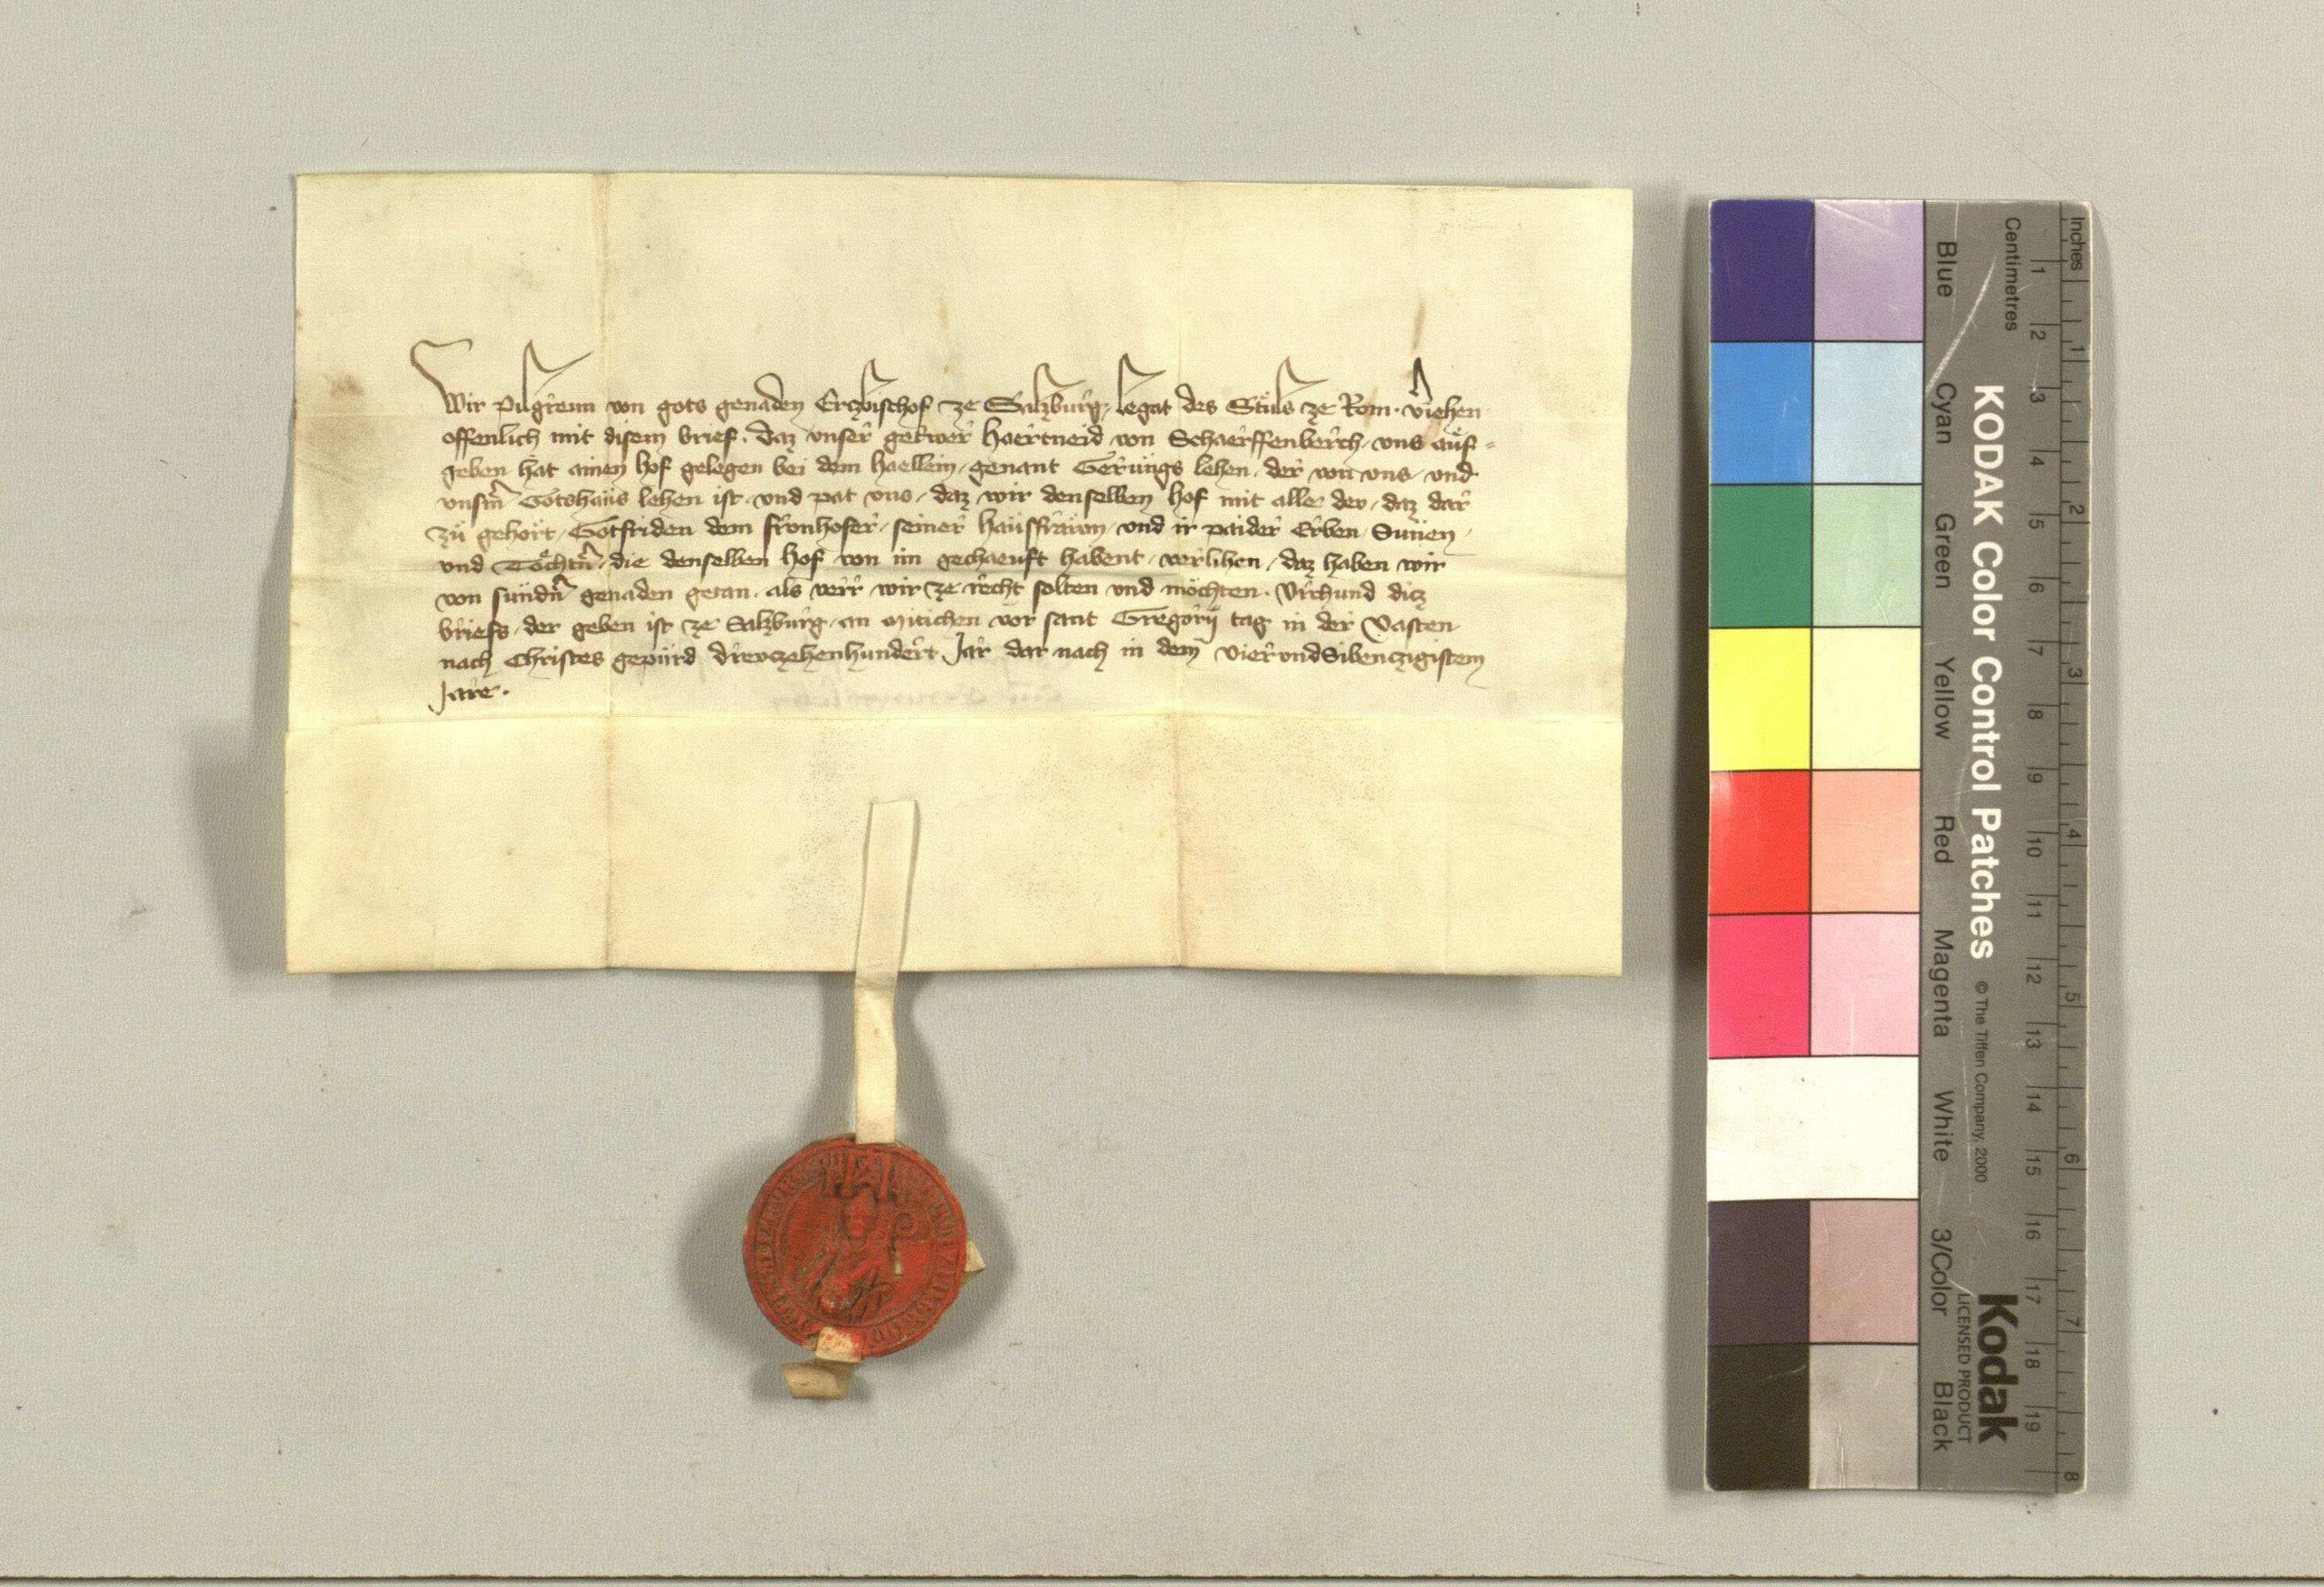 Wir Pilgreim von gots genaden Erczbischof ze Salzburg, Legat des Stuls ze Rom. v̂iehen
offenlich mit disem brief. daz vnser getrwer Haertneid von Schaerffenberch, vns auf⸗
geben hat ainen hof gelegen bei dem Haellein, genant Gerungs lehen, der von vns, vnd
vnsm̂ Gotshaus lehen ist, vnd pat vns, daz wir denselben hof mit alle dev, daz dar
zů gehört, Götfriden dem fronhofer, seiner haüsfrawn, vnd ir paider Erben, Sünen,
vnd Töchtn̂, die denselben hof von im gechaeuft habent, verlihen, daz haben wir
von sundn̂ genaden getan, als verr wir ze recht solten vnd möchten. Vrchund dicz
briefs, der geben ist ze Salzburg, an Mitichen vor sant Gregorij tag in der Vasten
nach Christes gepürd drevczehenhundert Jar dar nach in dem vier vnd Sibenczigistem
Jare.
KODAK Color Control Patches
© The Tiffen Company, 2000
Kodak
LICENSED PRODUCT
Inches
1 2 3 4 5 6 7 8
Centimetres
1 2 3 4 5 6 7 8 9 10 11 12 13 14 15 16 17 18 19
Blue Cyan Green Yellow Red Magenta White 3/Color Black